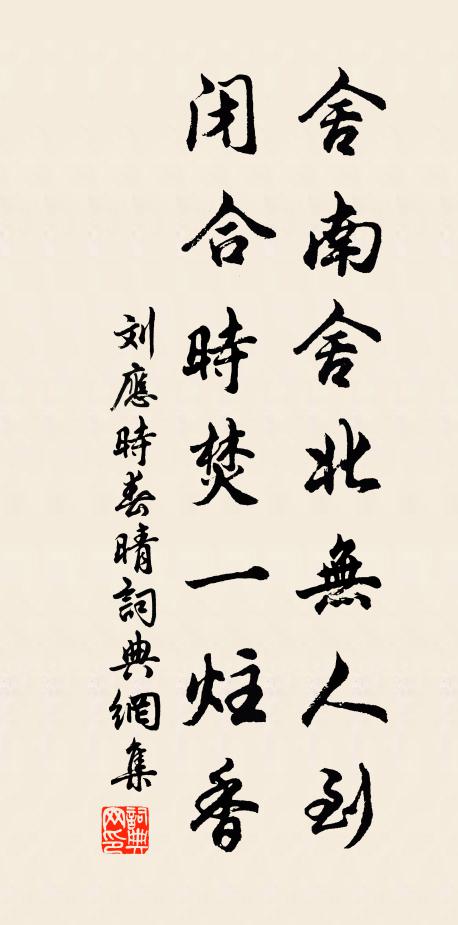 舍南舍北無人到
闭合時焚一炷香
刘應時春晴詞典網集
詞典網印